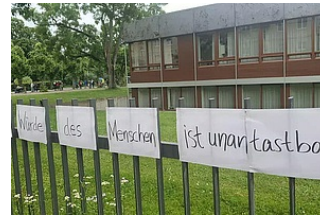 Würde des Menschen ist unantastba